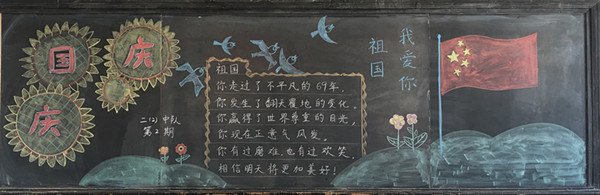 国庆
庆
二(2)中队
第2期
祖国
你走过了不平凡的69年,
你发生了翻天覆地的变化,
你赢得了世界尊重的目光,
你现在正意气风发。
你有过磨难,也有过欢笑,
相信明天将更加美好!
我爱你
祖国